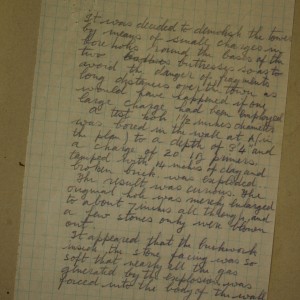 It was decided to demolish the tower
by means of small charges in
bore holes round the base of the
two buttresses so as to
avoid the danger of fragments
long distances over the town as
would have happened if one
large charge had been employed
A test hole 1½ inches diameter
was bored in the wall at A (in
the plan) to a depth of 3'6" and
a charge of 20 primers
tamped with 4 inches of clay and
broken brick was exploded.
The result was curious. The
original hole was merely enlarged
to about 7 inches all through, and
a few stones only were blown
out.
It appeared that the brickwork
inside the stone facing was so
soft that nearly all the gas
generated by the explosion was
forced into the body of the wall